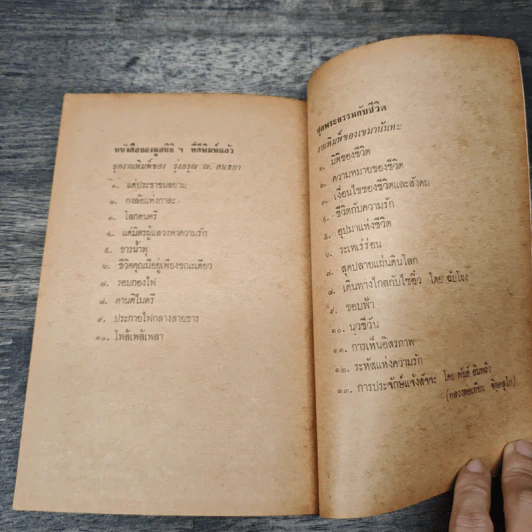 หนังสือของมูลนิธิ ฯ ที่ตีพิมพ์แล้ว
ชุดงานพิมพ์ของ รุ่งอรุณ ณ. สนธยา
๑. แด่ประชาชนสยาม
๒. กงล้อแห่งกาละ
๓. โลกดนตรี
๔. แด่มิตรผู้แสวงหาความรัก
๕. ธารน้ำพุ
๖. ชีวิตคุณมีอยู่เพียงขณะเดียว
๗. รอบกองไฟ
๘. ดานติไมตรี
๙. ประกายไฟกลางสายธาร
๑๐. ใกล้เพล้เพลา
ชุดพระธรรมกับชีวิต
งานพิมพ์ของเขมานันทะ
๑. มิติของชีวิต
๒. ความหมายของชีวิต
๓. เงื่อนไขของชีวิตและสังคม
๔. ชีวิตกับความรัก
๕. อุปมาแห่งชีวิต
๖. ระเหเร่ร่อน
๗. สุดปลายแผ่นดินโลก
๘. เดินทางไกลกับไซอิ๋ว โดย ฉับโผง
๙. ขอบฟ้า
๑๐. นุวชีวัน
๑๑. การเห็นอิสรภาพ
๑๒. ระหัสแห่งความรัก
๑๓. การประจักษ์แจ้งสัจจะ โดย พันธ์ อินทผิว
(หลวงพ่อเทียน จิตฺตสุโภ)